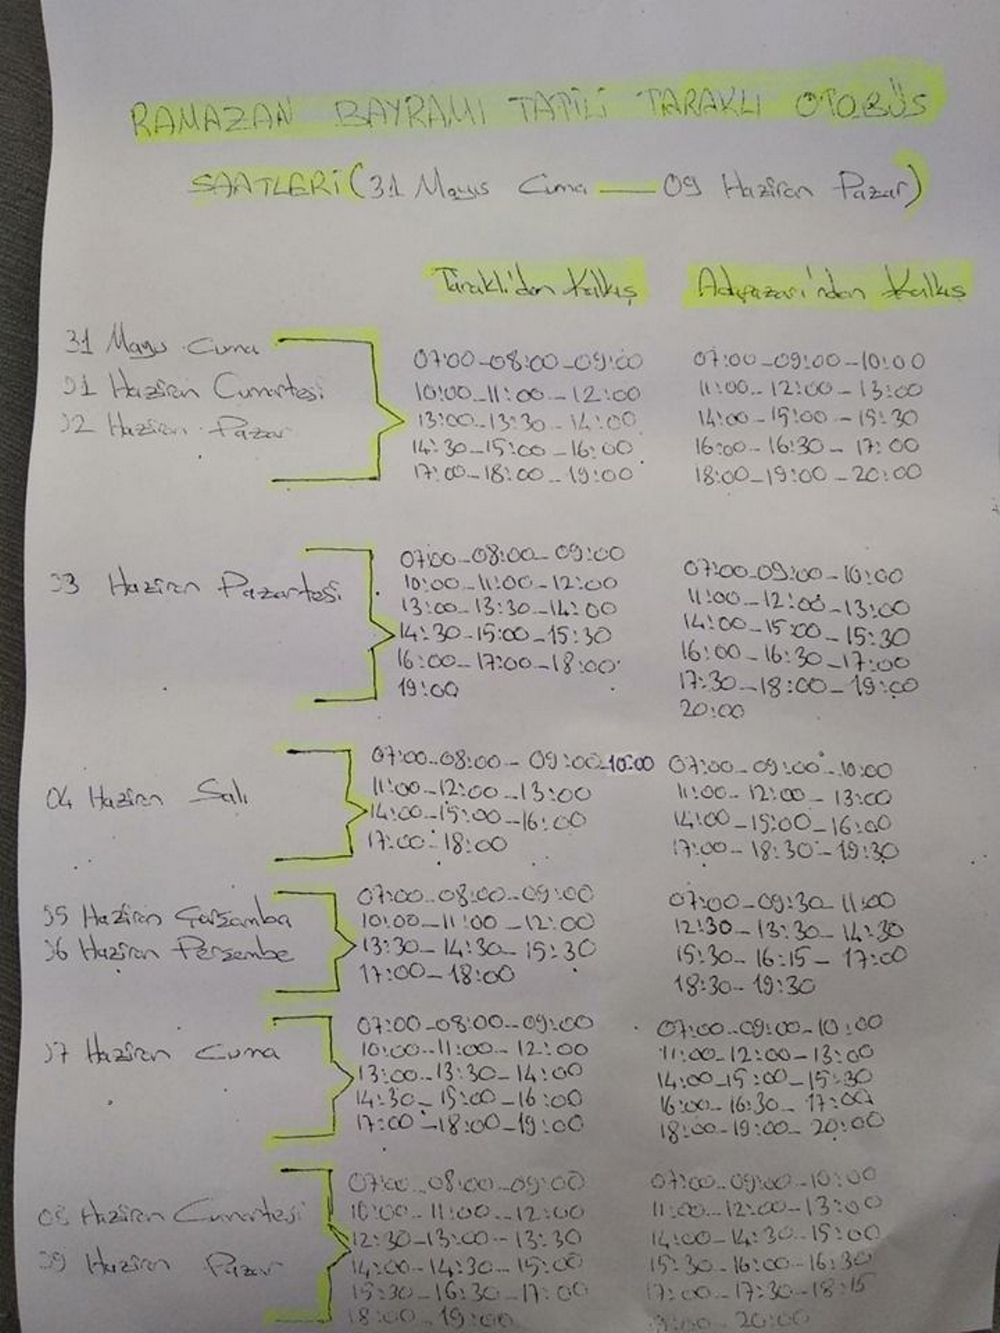 RAMAZAN BAYRAMI TATİLİ TARAKLI OTOBÜS
SAATLERİ (31 Mayıs Cuma — 09 Haziran Pazar)
Taraklı'dan Kalkış
Adapazarı'ndan Kalkış
31 Mayıs Cuma
01 Haziran Cumartesi
02 Haziran Pazar
07:00-08:00-09:00
10:00-11:00-12:00
13:00-13:30-14:00
14:30-15:00-16:00
17:00-18:00-19:00
07:00-09:00-10:00
11:00-12:00-13:00
14:00-15:00-15:30
16:00-16:30-17:00
18:00-19:00-20:00
03 Haziran Pazartesi
07:00-08:00-09:00
10:00-11:00-12:00
13:00-13:30-14:00
14:30-15:00-15:30
16:00-17:00-18:00
19:00
07:00-09:00-10:00
11:00-12:00-13:00
14:00-15:00-15:30
16:00-16:30-17:00
17:30-18:00-19:00
20:00
04 Haziran Salı
07:00-08:00-09:00-10:00
11:00-12:00-13:00
14:00-15:00-16:00
17:00-18:00
07:00-09:00-10:00
11:00-12:00-13:00
14:00-15:00-16:00
17:00-18:30-19:30
05 Haziran Çarşamba
06 Haziran Perşembe
07:00-08:00-09:00
10:00-11:00-12:00
13:30-14:30-15:30
17:00-18:00
07:00-09:30-11:00
12:30-13:30-14:30
15:30-16:15-17:00
18:30-19:30
07 Haziran Cuma
07:00-08:00-09:00
10:00-11:00-12:00
13:00-13:30-14:00
14:30-15:00-16:00
17:00-18:00-19:00
07:00-09:00-10:00
11:00-12:00-13:00
14:00-15:00-15:30
16:00-16:30-17:00
18:00-19:00-20:00
08 Haziran Cumartesi
09 Haziran Pazar
07:00-08:00-09:00
10:00-11:00-12:00
12:30-13:00-13:30
14:00-14:30-15:00
15:30-16:30-17:00
18:00-19:00
07:00-09:00-10:00
11:00-12:00-13:00
14:00-14:30-15:00
15:30-16:00-16:30
17:00-17:30-18:15
20:00